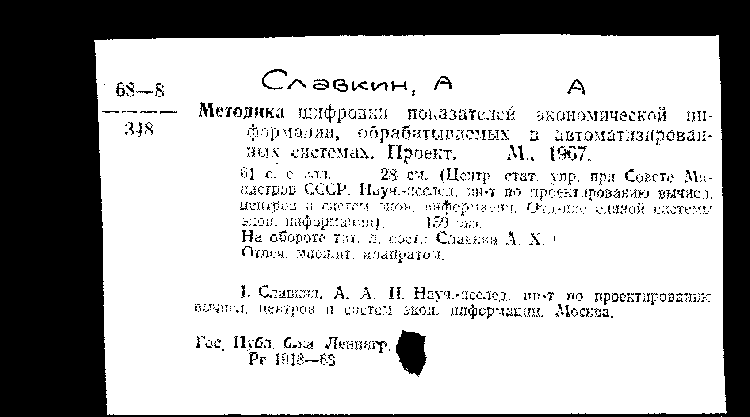 Славкин, А А
68—8
348
Методика шифровки показателей экономической ин-
формации, обрабатываемых в автоматизирован-
ных системах. Проект. М., 1967.
61 с. с илл. 28 см. (Центр. стат. упр. при Совете Ми-
нистров СССР. Науч.-исслед. ин-т по проектированию вычисл.
центров и систем экон. информации. Отд-ние единой системы
экон. информации). 150 экз.
На обороте тит. л. сост.: Славкин А. Х.
Отпеч. множит. аппаратом.
I. Славкин, А. А. II. Науч.-исслед. ин-т по проектированию
вычисл. центров и систем экон. информации. Москва.
Гос. Публ. б-ка Ленингр.
Рг 1918—68